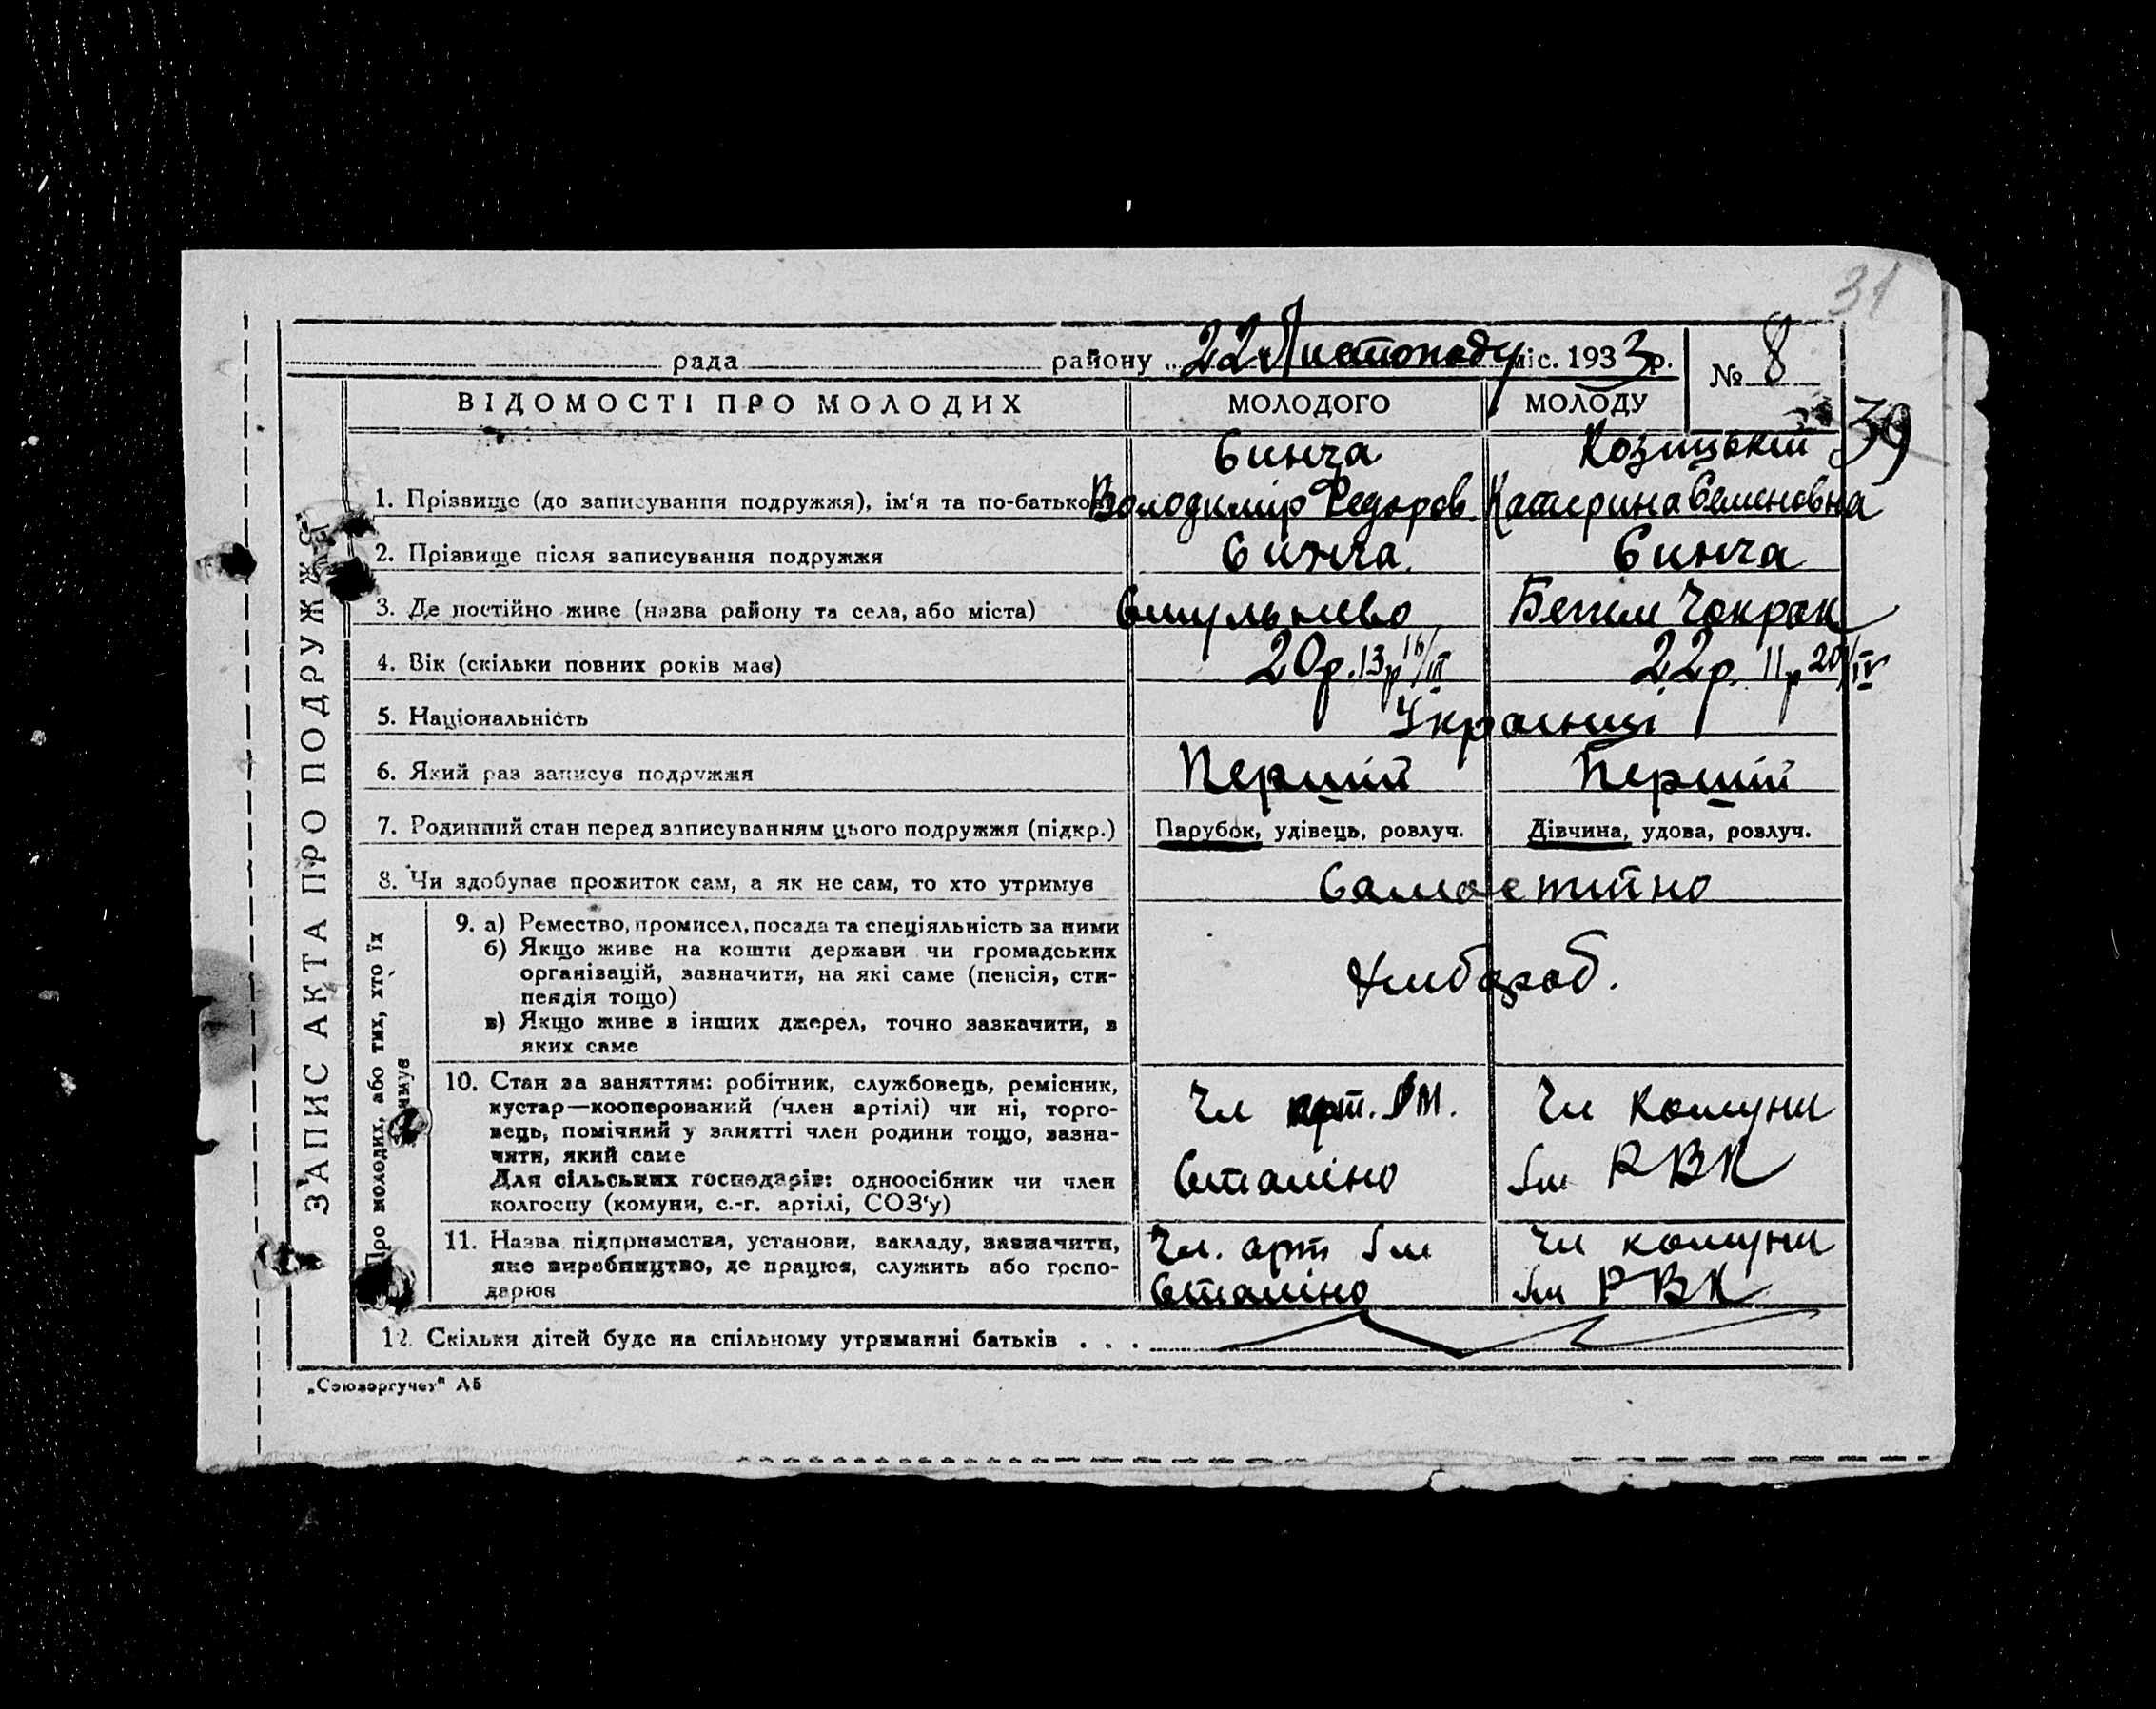 31
рада району 22 Листопаду міс. 1933 р. № 8
39
ЗАПИС АКТА ПРО ПОДРУЖЖЯ
ВІДОМОСТІ ПРО МОЛОДИХ МОЛОДОГО МОЛОДУ
Синча Козицькій
1. Прізвище (до записування подружжя), ім'я та по-батькові Володимір Федоров. Катерина Семеновна
2. Прізвище після записування подружжя Синча. Синча
3. Де постійно живе (назва району та села, або міста) Смульнево Бегим Чокрак
4. Вік (скільки повних років має) 20р. 13р 16/III 22р. 11р 20/IV
5. Національність Українці
6. Який раз записує подружжя Першій Першій
7. Родинний стан перед записуванням цього подружжя (підкр.) Парубок, удівець, розлуч. Дівчина, удова, розлуч.
8. Чи здобуває прожиток сам, а як не сам, то хто утримує Самостійно
Про молодих, або тих, хто їх утримує
9. а) Ремество, промисел, посада та спеціяльність за ними
б) Якщо живе на кошти держави чи громадських
організацій, зазначити, на які саме (пенсія, сти-
пендія тощо)
Хлібороб.
в) Якщо живе з інших джерел, точно зазначити, з
яких саме
10. Стан за заняттям: робітник, службовець, ремісник,
кустар—кооперований (член артілі) чи ні, торго- Чл арт. ІМ. Чл Комуни
вець, помічний у занятті член родини тощо, зазна-
чити, який саме
Для сільських господарів: одноосібник чи член Сталіно Ім РВК
колгоспу (комуни, с.-г. артілі, СОЗ'у)
11. Назва підприємства, установи, закладу, зазначити, Чл. арт Ім Чл комуни
яке виробництво, де працює, служить або госпо-
дарює Сталіно Ім РВК
12. Скільки дітей буде на спільному утриманні батьків . . .
„Союзоргучет" А5